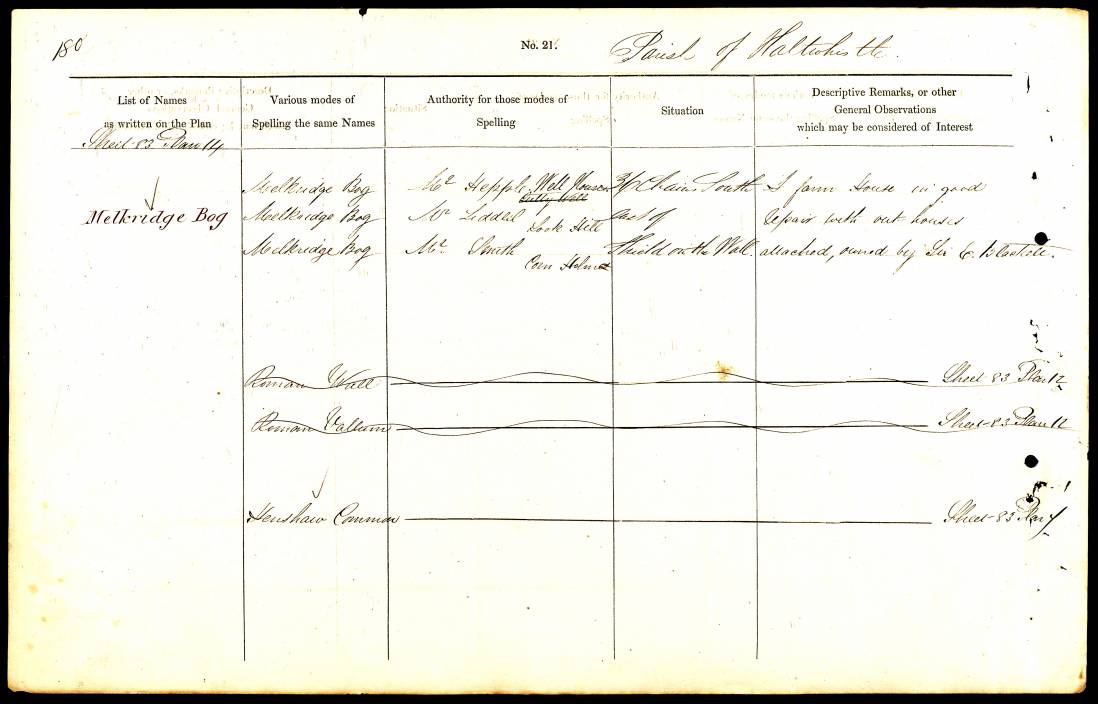 180
No. 21.
Parish of Haltwhistle.
List of Names
as written on the Plan
Various modes of
Spelling the same Names
Authority for those modes of
Spelling
Situation
Descriptive Remarks, or other
General Observations
which may be considered of Interest
Sheet 83 Plan 14
Melkridge Bog Mr Hepple Well House Chains South A farm House in good
Melkridge Bog Melkridge Bog Mr Liddel East of repair with out houses
Melkridge Bog Mr Smith Shield on the Wall. attached, owned by Sir E. Blackett.
Roman Wall Sheet 83 Plan 12
Roman Vallum Sheet 83 Plan 12
Henshaw Common Sheet 83 Plan